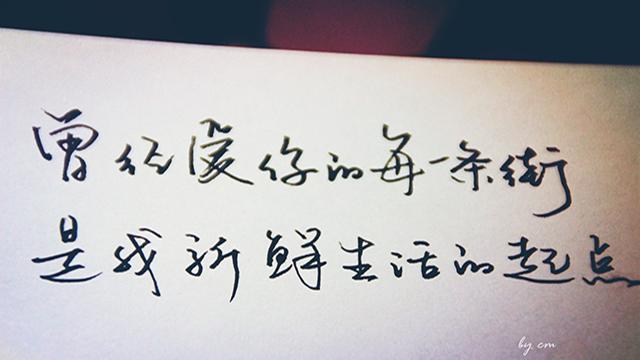 曾经爱你的每一条街
是我新鲜生活的起点
by cm